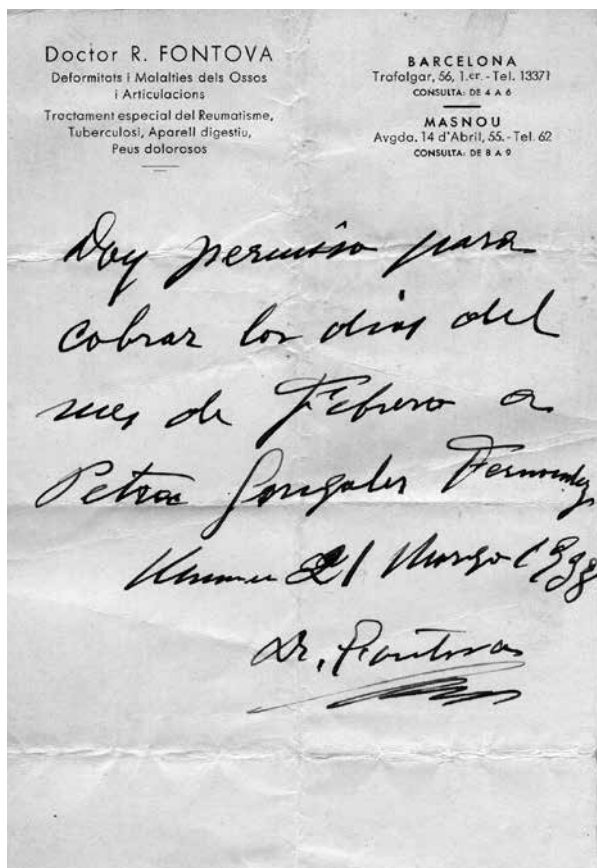 Doctor R. FONTOVA
Deformitats i Malalties dels Ossos
i Articulacions
Tractament especial del Reumatisme,
Tuberculosi, Aparell digestiu,
Peus dolorosos
BARCELONA
Trafalgar, 56, 1.er. - Tel. 13371
CONSULTA: DE 4 A 6
MASNOU
Avgda. 14 d'Abril, 55. - Tel. 62
CONSULTA: DE 8 A 9
Doy permiso para
cobrar los dias del
mes de Febrero a
Petra Gonzales Fernandez
21 Marzo 1938
Dr. Fontova